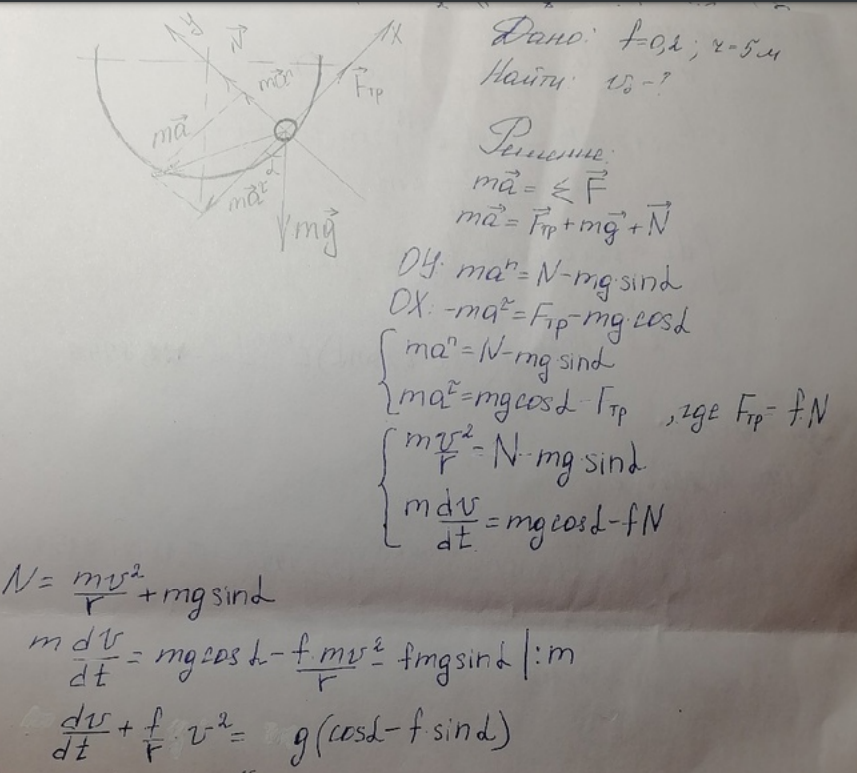 y
N⃗
X
maⁿ
F⃗тр
ma⃗
ma⃗^τ
α
mg⃗
Дано: f=0,2; r=5м
Найти: v₀-?
Решение:
ma⃗ = ΣF⃗
ma⃗ = F⃗тр + mg⃗ + N⃗
OY: maⁿ = N - mg·sinα
OX: -ma^τ = Fтр - mg·cosα
maⁿ = N - mg sinα
ma^τ = mg cosα - Fтр , где Fтр = f·N
m v²/r = N - mg·sinα
m dv/dt = mg cosα - fN
N = mv²/r + mg sinα
m dv/dt = mg cosα - f·mv²/r - fmg sinα |:m
dv/dt + f/r · v² = g(cosα - f·sinα)